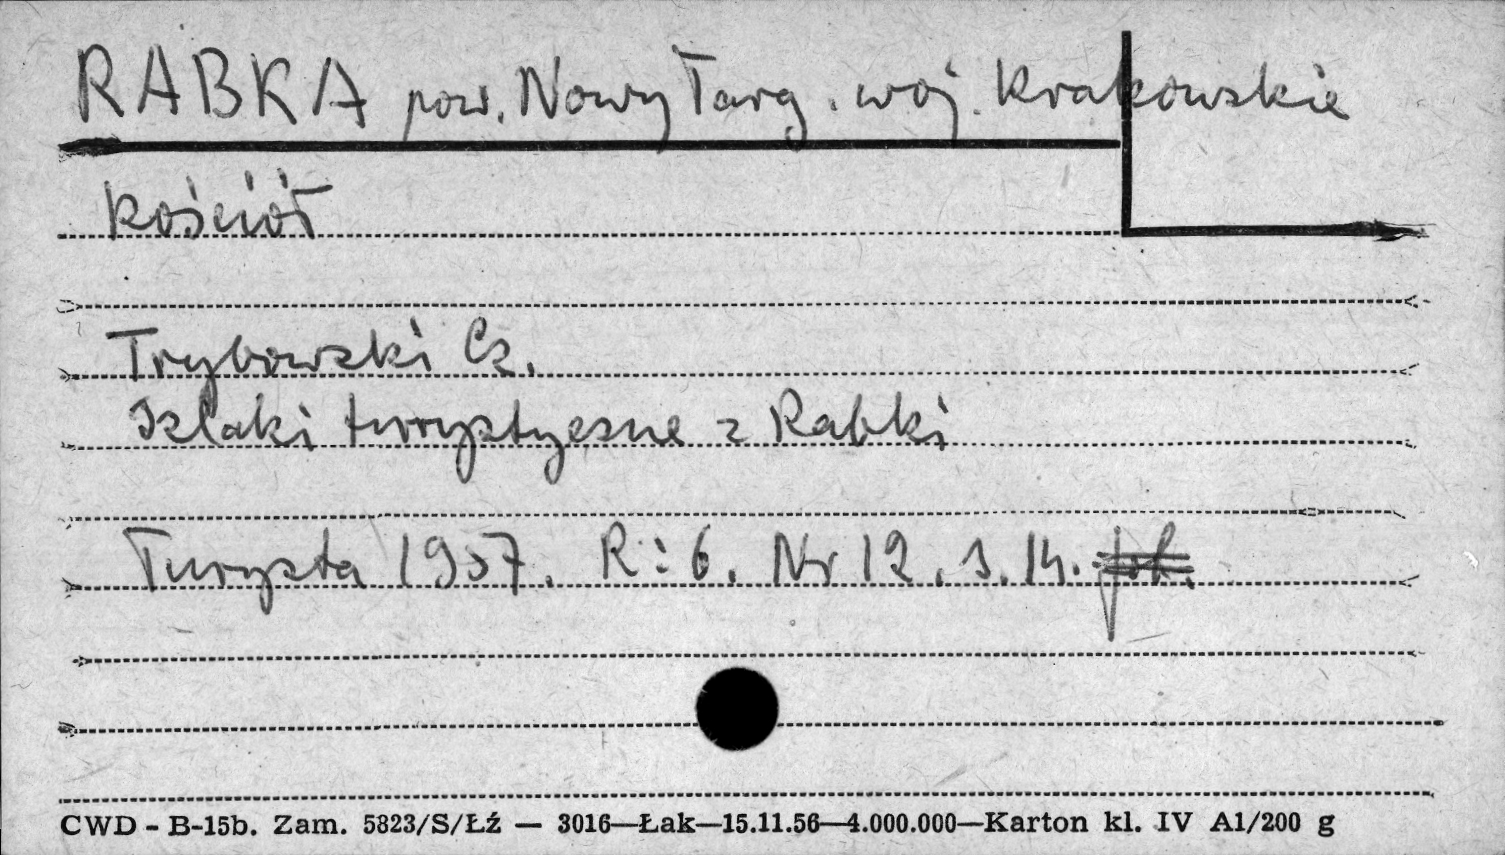 RABKA pow. Nowy Targ. woj. Krakowskie
Kościół
Trybowski Cz.
Szlaki turystyczne z Rabki
Turysta 1957. R: 6. Nr 12. s. 14.
CWD - B-15b. Zam. 5823/S/Łź — 3016—Łak—15.11.56—4.000.000—Karton kl. IV A1/200 g